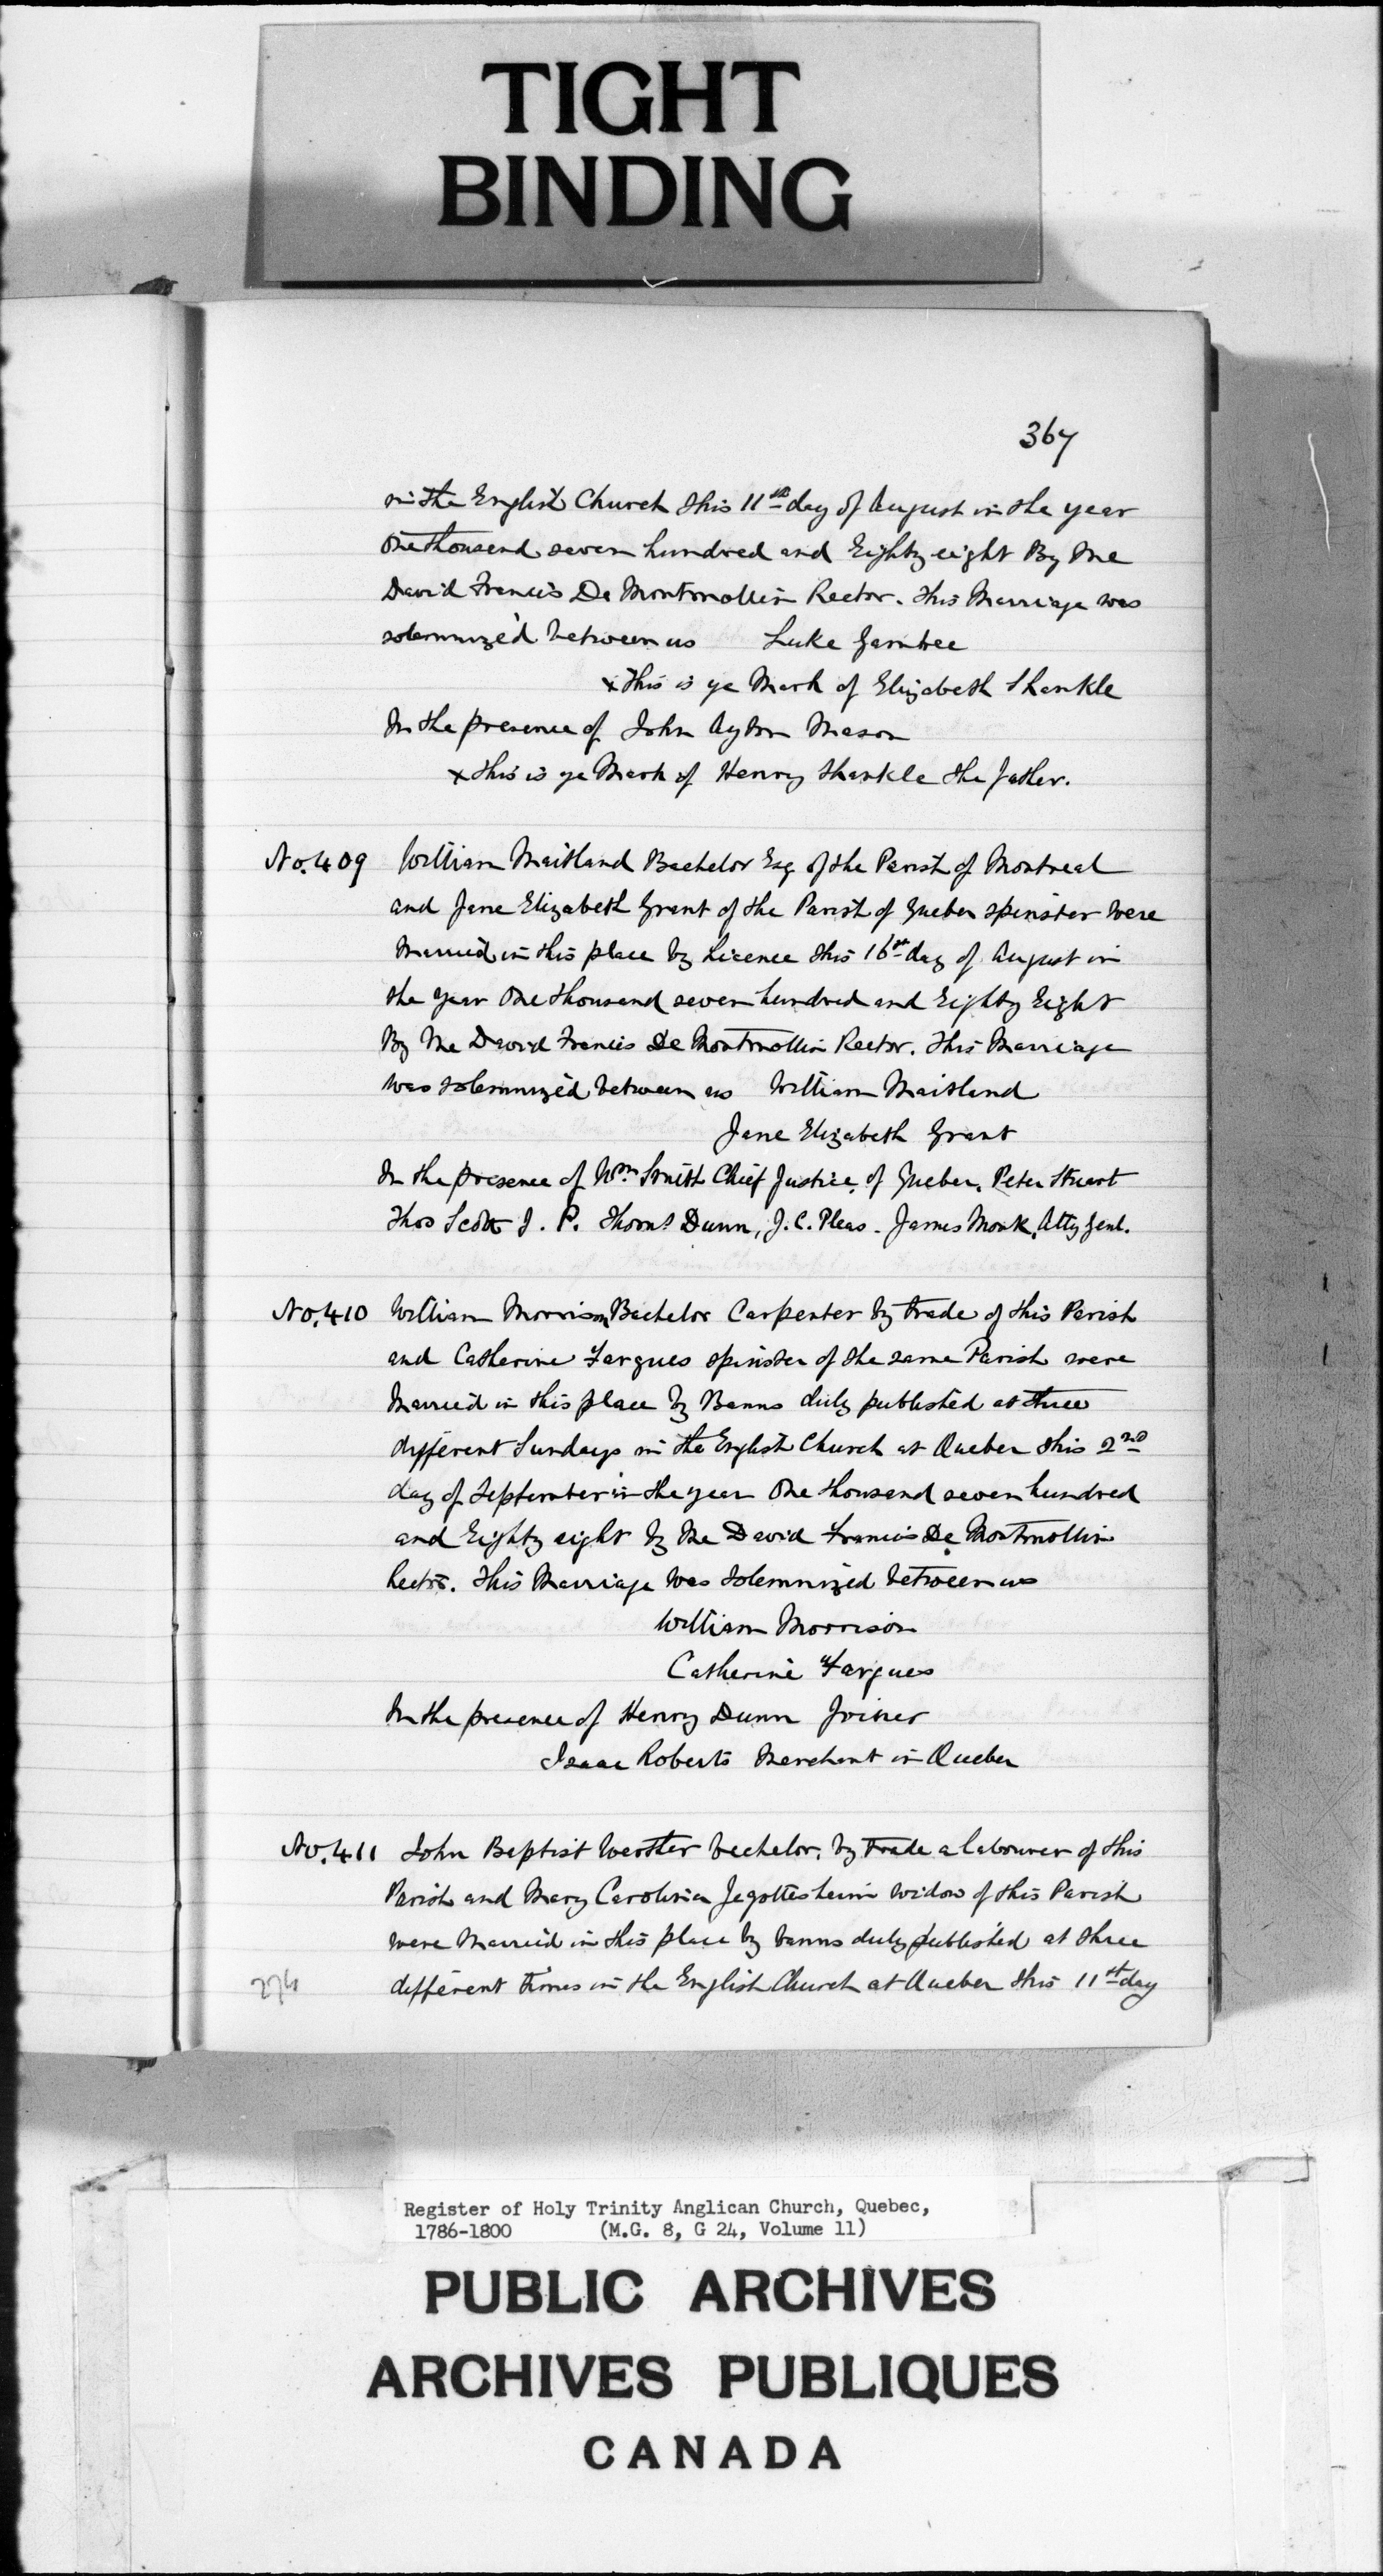 TIGHT
BINDING
367
in the English Church this 11th day of August in the year
One thousand seven hundred and Eighty eight By me
David Francis De Montmollin Rector. This Marriage was
solemnized between us Luke
x This is ye Mark of Elizabeth Shankle
In the presence of John Ayton Mason
x this is ye Mark of Henry Shankle the father.
No. 409 William Maitland Bachelor Esq of the Parish of Montreal
and Jane Elizabeth Grant of the Parish of Quebec spinster were
Married in this place by Licence this 16th day of August in
the year One thousand seven hundred and Eighty Eight
By Me David Francis De Montmollin Rector. This Marriage
was solemnized between us William Maitland
Jane Elizabeth Grant
In the presence of Wm. Smith Chief Justice, of Quebec, Peter Stuart
Thos Scott J. P. Thoms Dunn, J.C. Pleas. James Monk, Atty Genl.
No. 410 William Morrison Bachelor Carpenter by trade of this Parish
and Catherine Fargues spinster of the same Parish were
Married in this place by Banns duly published at three
different Sundays in the English Church at Quebec this 2nd
day of September in the year One thousand seven hundred
and Eighty eight by Me David Francis De Montmollin
Rector. This Marriage was solemnized between us
William Morrison
Catherine Fargues
In the presence of Henry Dunn Joiner
Isaac Roberts Merchant in Quebec
No. 411 John Baptist bachelor, by trade a labourer of this
Parish and Mary Carolina widow of this Parish
were Married in this place by banns duly published at three
different times in the English Church at Quebec this 11th day
274
Register of Holy Trinity Anglican Church, Quebec,
1786-1800 (M.G. 8, G 24, Volume 11)
PUBLIC ARCHIVES
ARCHIVES PUBLIQUES
CANADA